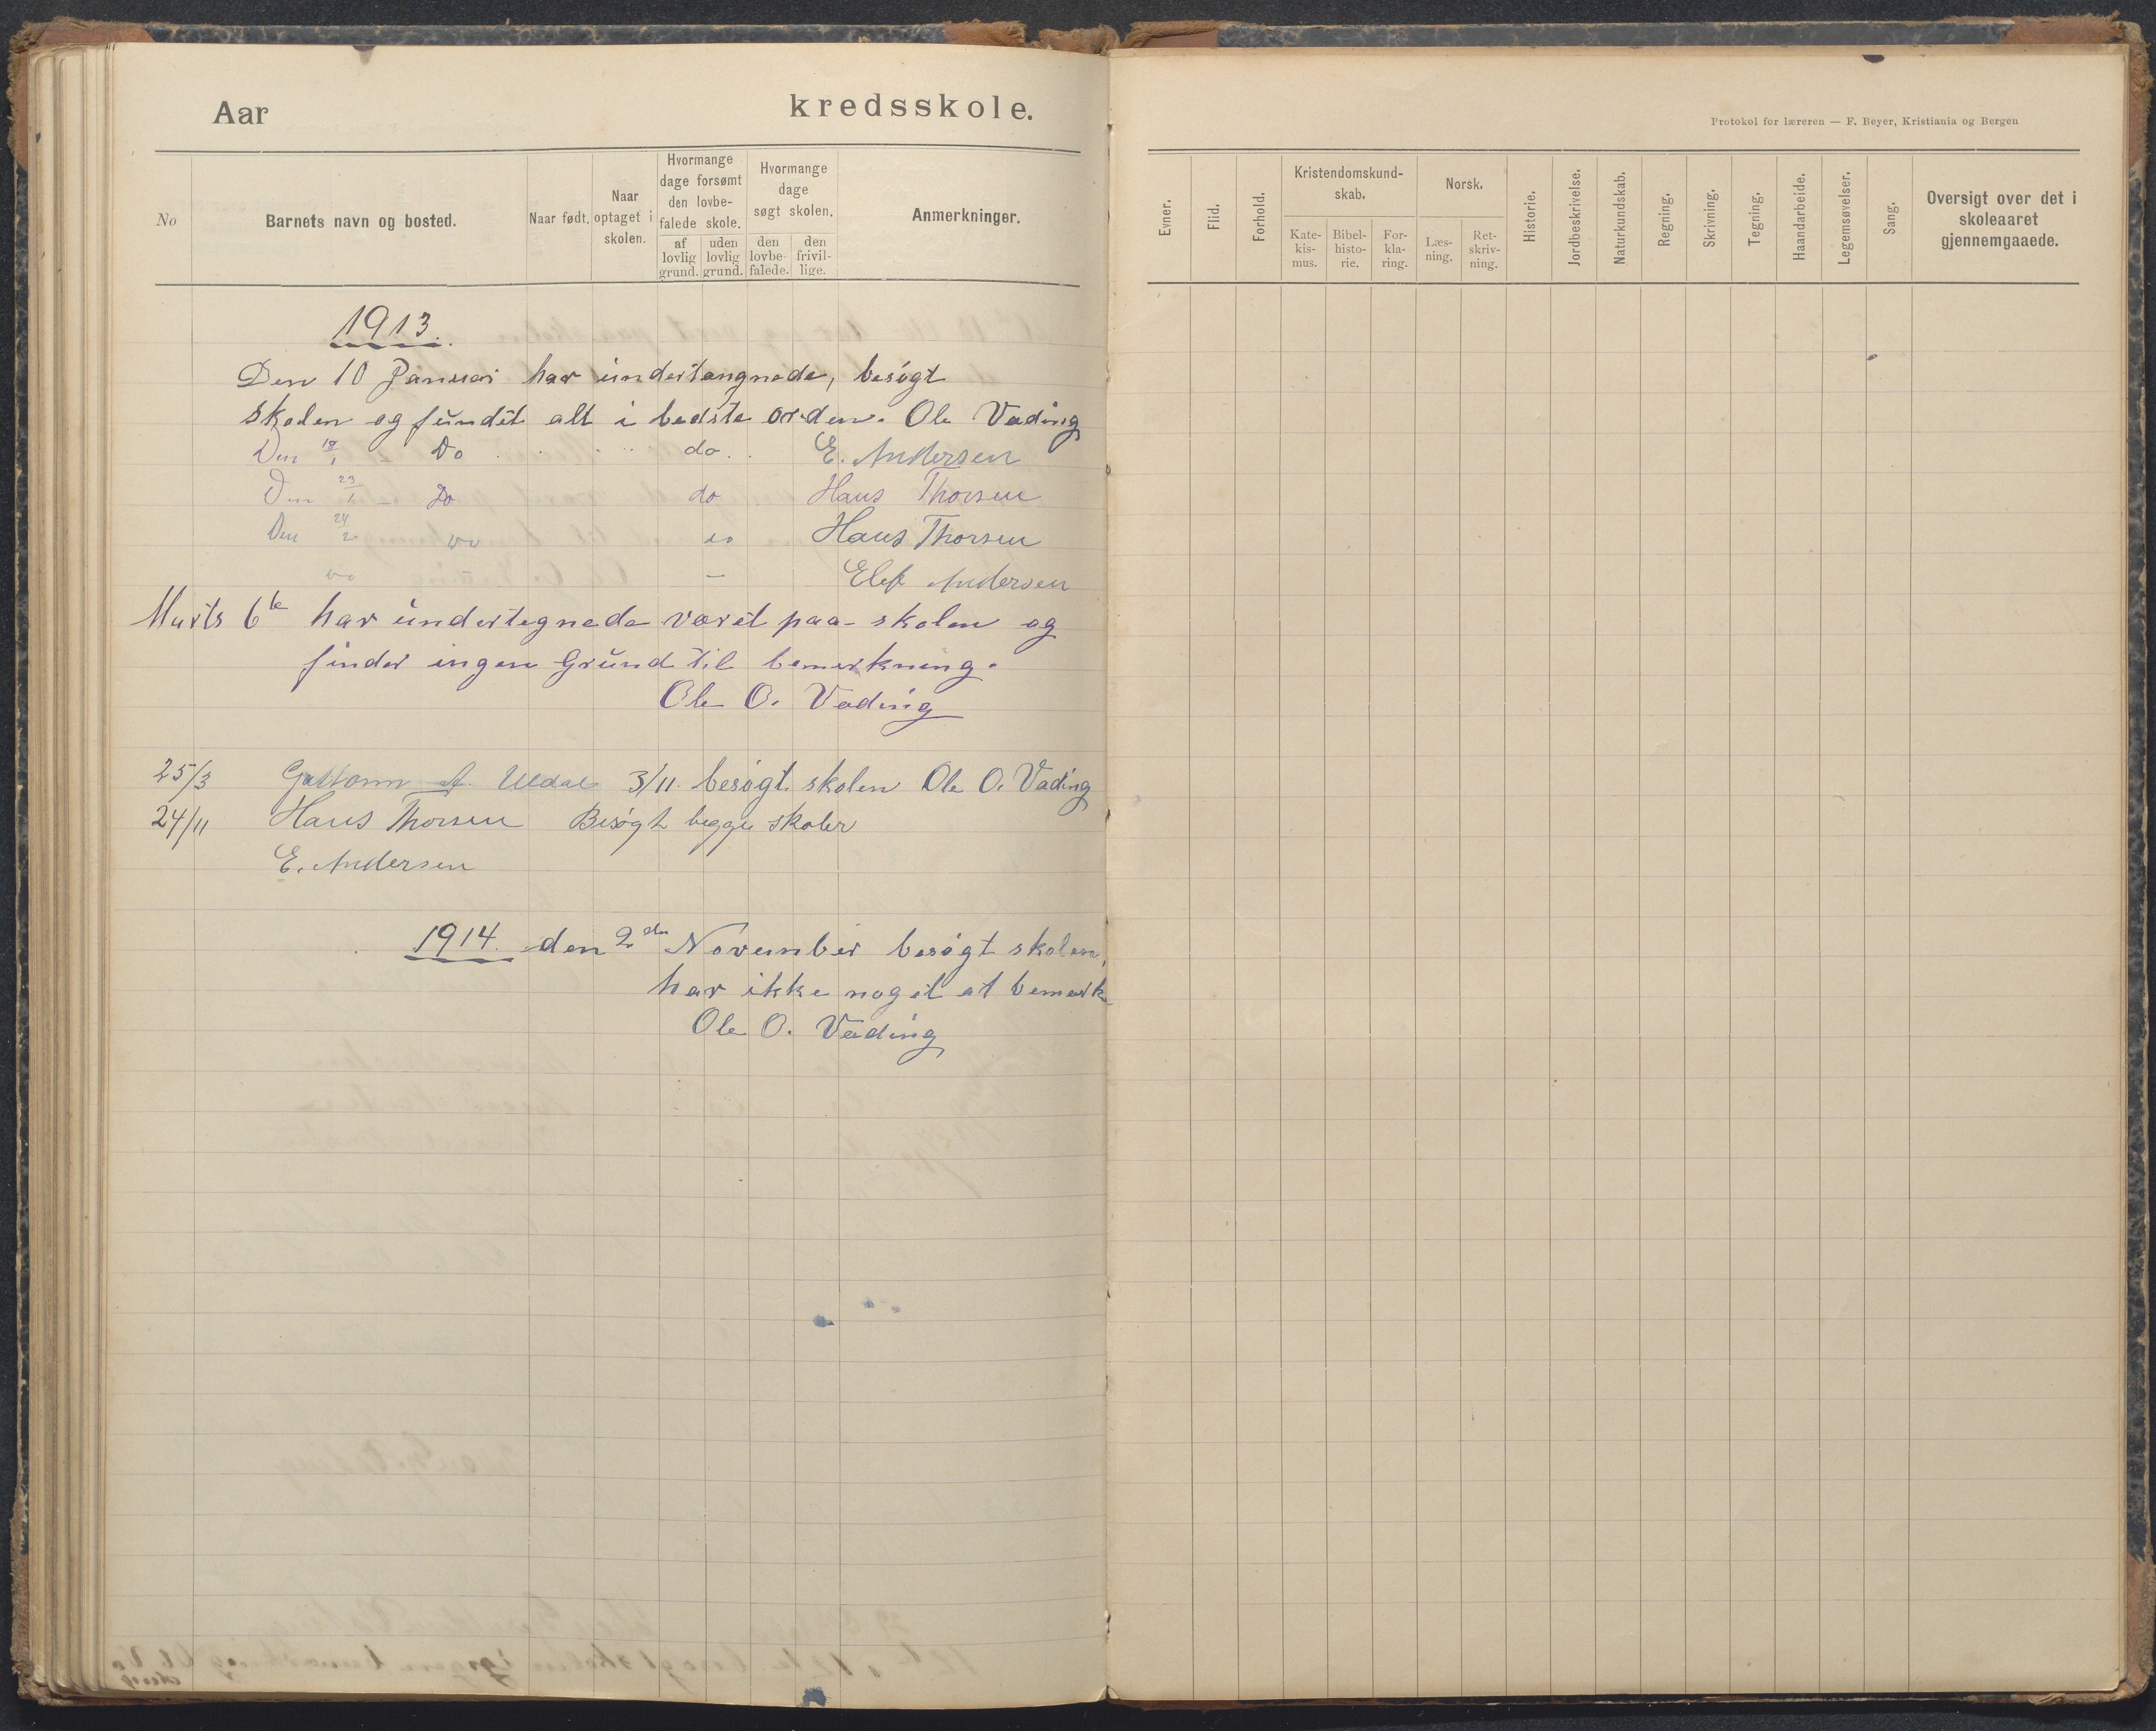 Aar kredsskole.
No
Barnets navn og bosted.
Naar født.
Naar
optaget i
skolen.
Hvormange
dage forsømt
den lovbe-
falede skole.
af
lovlig
grund.
uden
lovlig
grund.
Hvormange
dage
søgt skolen.
den
lovbe-
falede.
den
frivil-
lige.
Anmerkninger.
1913.
Den 10 Januari har undertangnede, besøgt
skolen og fundet alt i bedste orden. Ole Vading
Den Do do E. Andersen
Den 23/1 - Do do Hans Thorsen
Den 24/2 Do do Hans Thorsen
Do — Andersen
Marts 6te har undertegnede været paa skolen og
finder ingen Grund til bemerkning.
Ole O. Vading
25/3 A. Uldal 3/11. besøgt skolen Ole O. Vading
24/11 Hans Thorsen Besøgt begge skoler
E. Andersen
1914. den 2den November besøgt skolen,
har ikke noget at bemerk
Ole O. Vading
Protokol for læreren — F. Beyer, Kristiania og Bergen
Evner.
Flid.
Forhold.
Kristendomskund-
skab.
Kate-
kis-
mus.
Bibel-
histo-
rie.
For-
kla-
ring.
Norsk.
Læs-
ning.
Ret-
skriv-
ning.
Historie.
Jordbeskrivelse.
Naturkundskab.
Regning.
Skrivning.
Tegning.
Haandarbeide.
Legemsøvelser.
Sang.
Oversigt over det i
skoleaaret
gjennemgaaede.